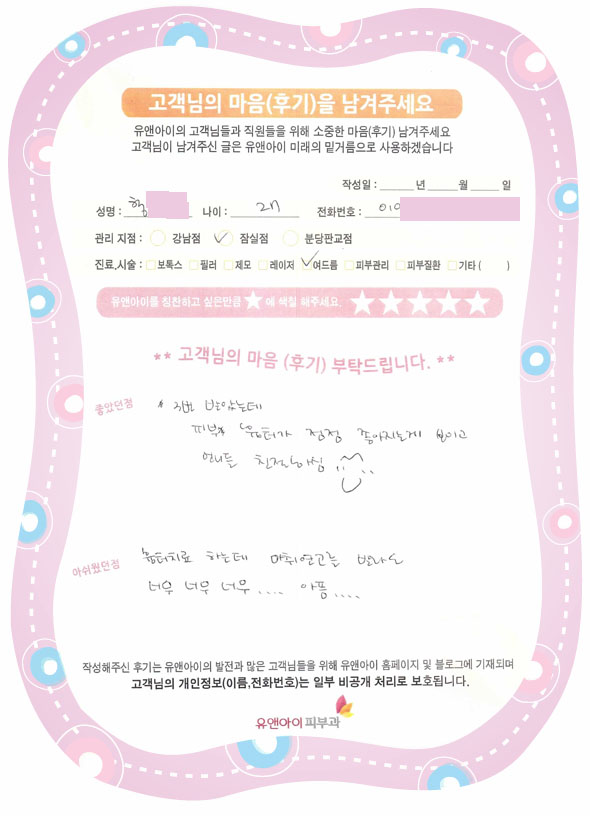 고객님의 마음(후기)을 남겨주세요
유앤아이의 고객님들과 직원들을 위해 소중한 마음(후기) 남겨주세요
고객님이 남겨주신 글은 유앤아이 미래의 밑거름으로 사용하겠습니다
작성일 : 년 월 일
성명 : 나이 : 전화번호 : 010
관리 지점 : 강남점 잠실점 분당판교점
진료,시술 : 보톡스 필러 제모 레이저 여드름 피부관리 피부질환 기타 ( )
유앤아이를 칭찬하고 싶은만큼 ★ 에 색칠 해주세요. ★★★★★
** 고객님의 마음 (후기) 부탁드립니다. **
좋았던점 * 3번 받았는데
피부 흉터가 점점 좋아지는게 보이고
언니들 친절하심
아쉬웠던점 흉터치료 하는데 마취연고를 발라도
너무 너무 너무 .... 아픔 ....
작성해주신 후기는 유앤아이의 발전과 많은 고객님들을 위해 유앤아이 홈페이지 및 블로그에 기재되며
고객님의 개인정보(이름,전화번호)는 일부 비공개 처리로 보호됩니다.
유앤아이피부과